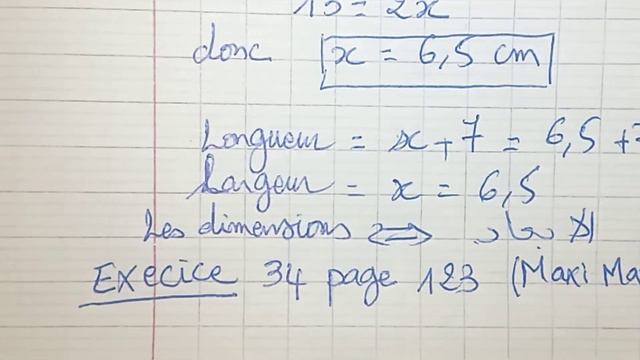 13 = 2x
donc x = 6,5 cm
Longueur = x + 7 = 6,5 +
Largeur = x = 6,5
Les dimensions ⇔
Execice 34 page 123 (Maxi Ma